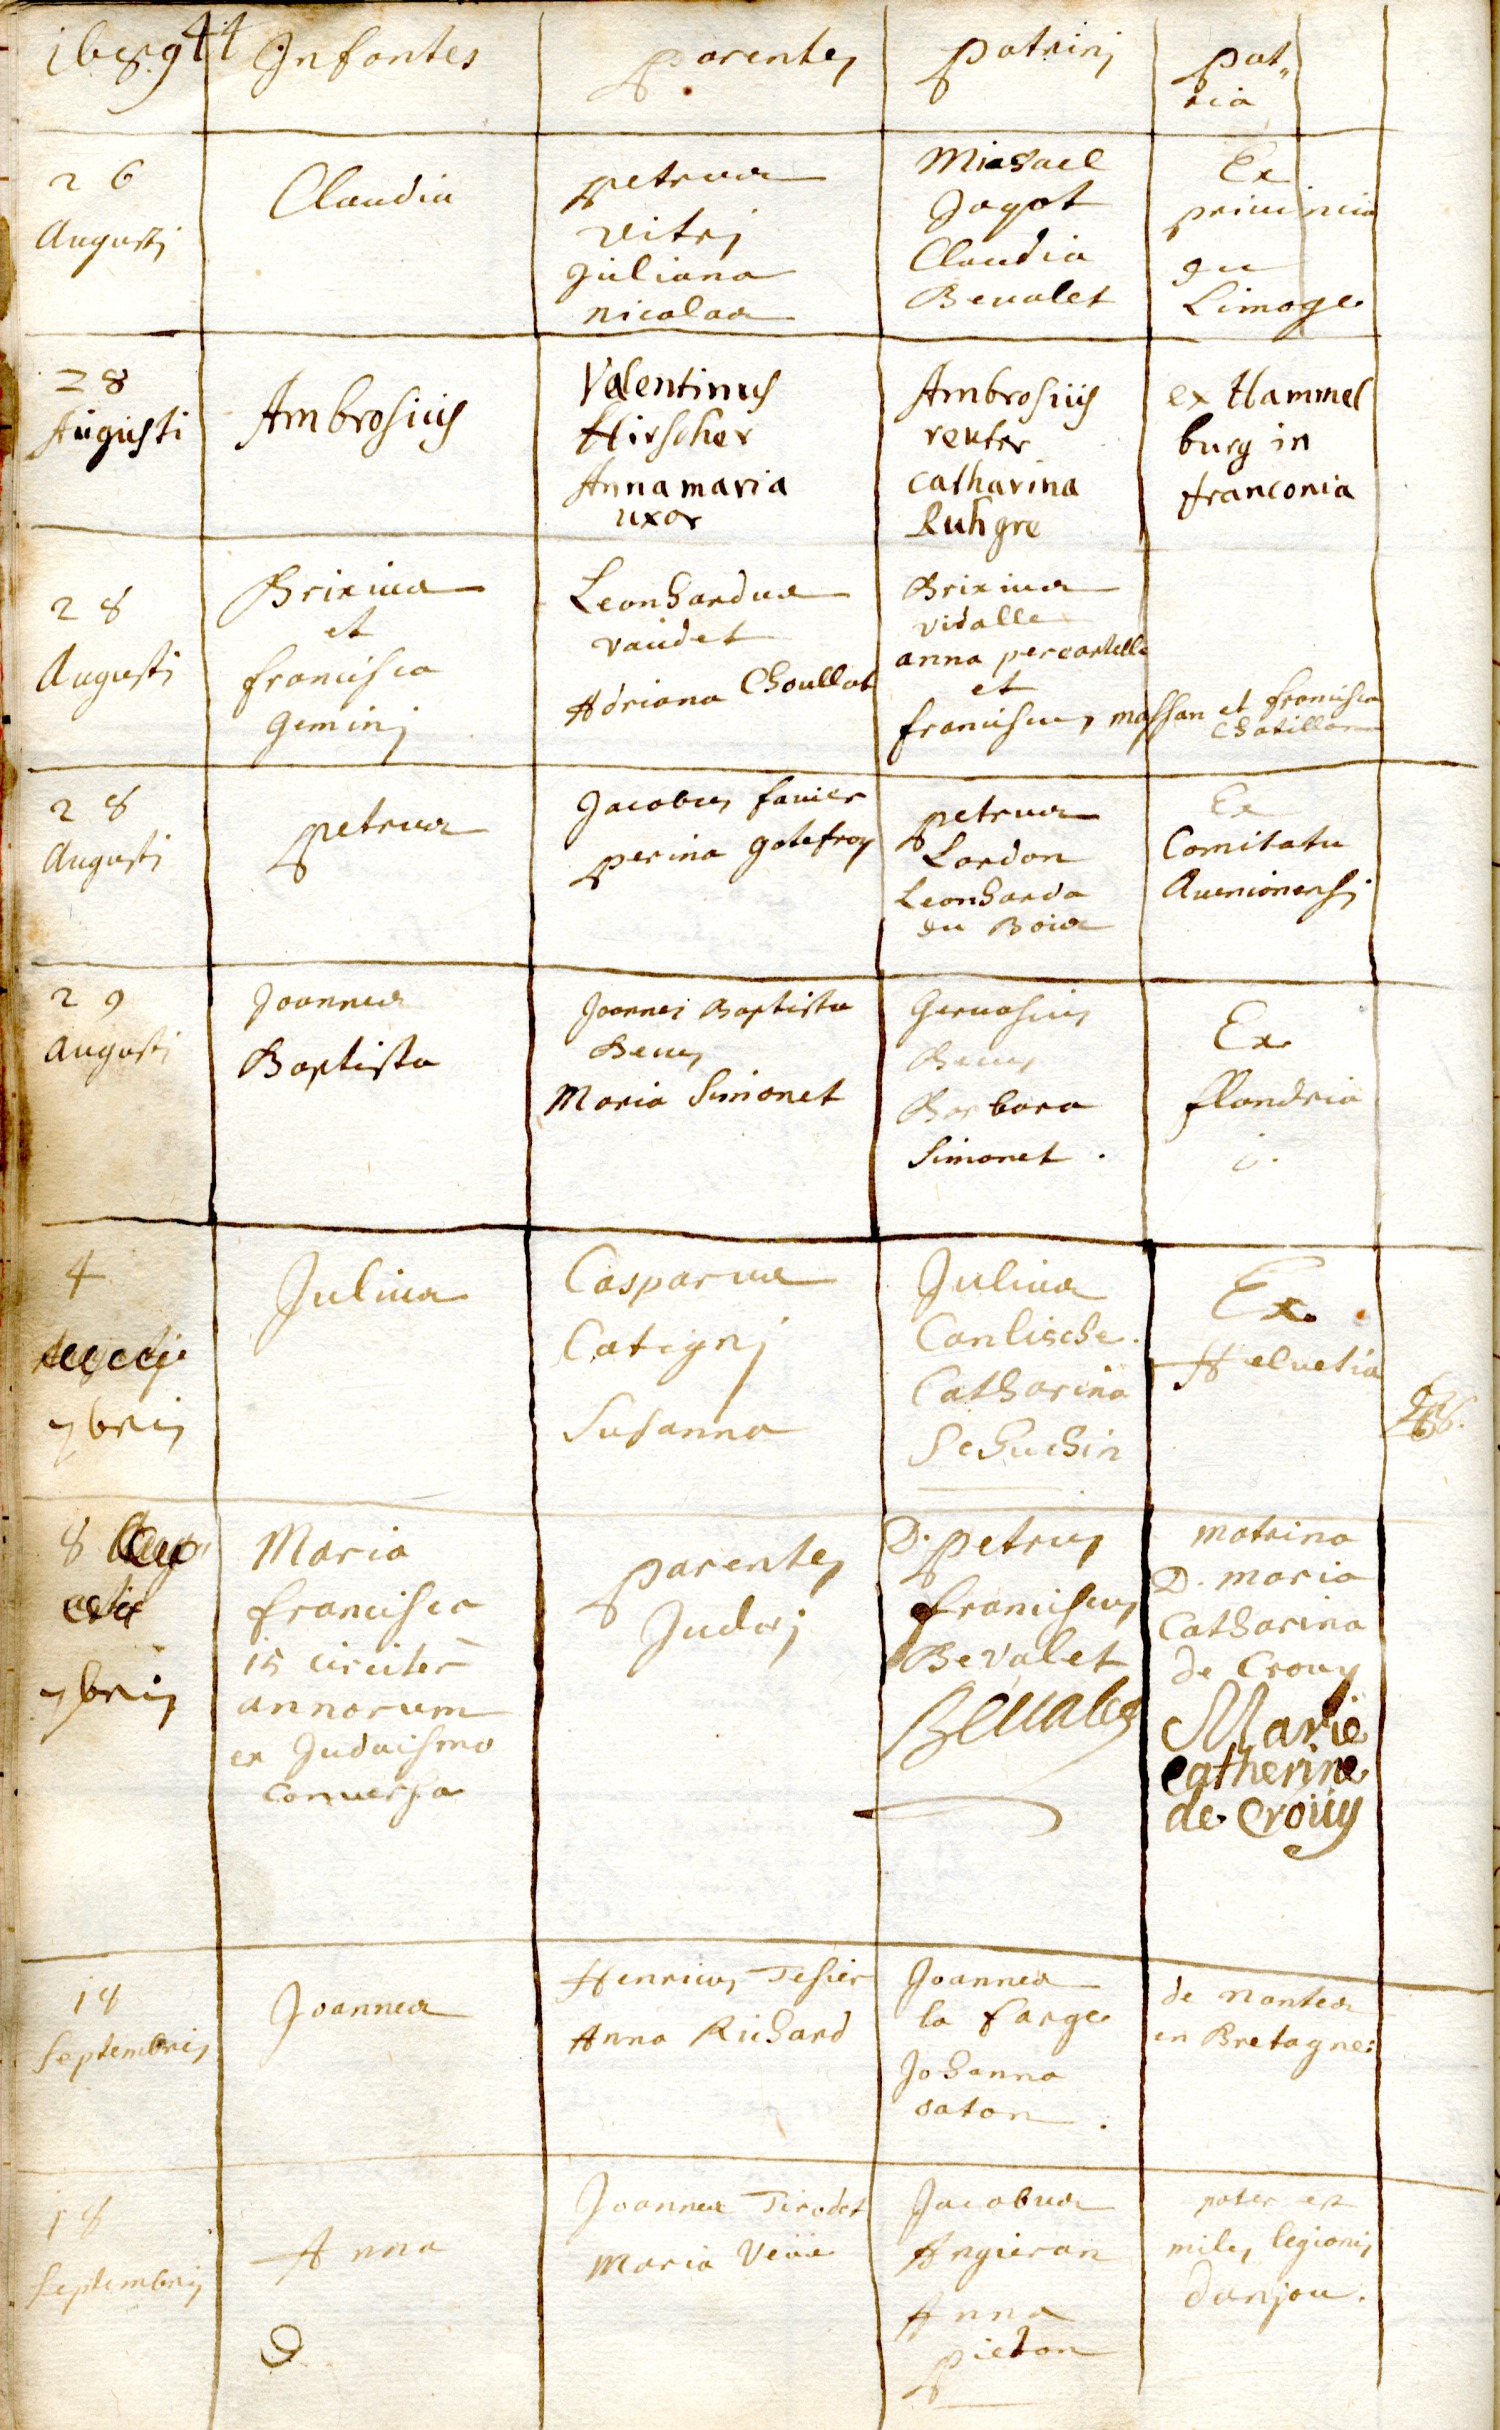 1689 44
Infantes
parentes
patrinj
pat„
ria
26
Augustj
Claudia
petrus
Vitrj
Juliana
nicolas
Michael
Jagot
Claudia
Bevalet
Ex
du
Limoge
28
Augusti
Ambrosius
Valentinus
Hirscher
Anna maria
uxor
Ambrosius
reuter
catharina
ex Hammel
burg in
franconia
28
Augusti
Brixius
et
francisca
Geminj
Leonhardus
vaudet
Adriana Choullat
Brixius
vidalle
anna
et
franciscus massan et francisca
Chatillon
28
Augustj
petrus
Jacobus favier
perina gotefroy
petrus
Lardon
Leonharda
du Bois
Ex
Comitatu
Avenionensj
29
Augusti
Joannes
Baptista
Joannes Baptista
Beus
Maria Simonet
Gervasius
Beus
Barbara
Simonet.
Ex
flandria
4
7bris
Julius
Casparus
Catignj
Susanna
Julius
Canlische.
Catharina
Schuchin
Ex
Helvetia
8
7bris
Maria
francisca
15 circiter
annorum
ex Judaismo
conversa
parentes
Judæj
D. petrus
franciscus
Bevalet
Beualet
matrina
D. maria
Catharina
de Crouy
Marie
catherine
de croüy
18
Septembris
Joannes
Henricus Tesier
Anna Richard
Joannes
la farge
Johanna
daton.
de nantes
en Bretagne:
18
Septembris
Anna
Joannes Tirodet
Maria
Jacobus
Angieran
Anna
pieton
pater est
miles legionis
danjou.